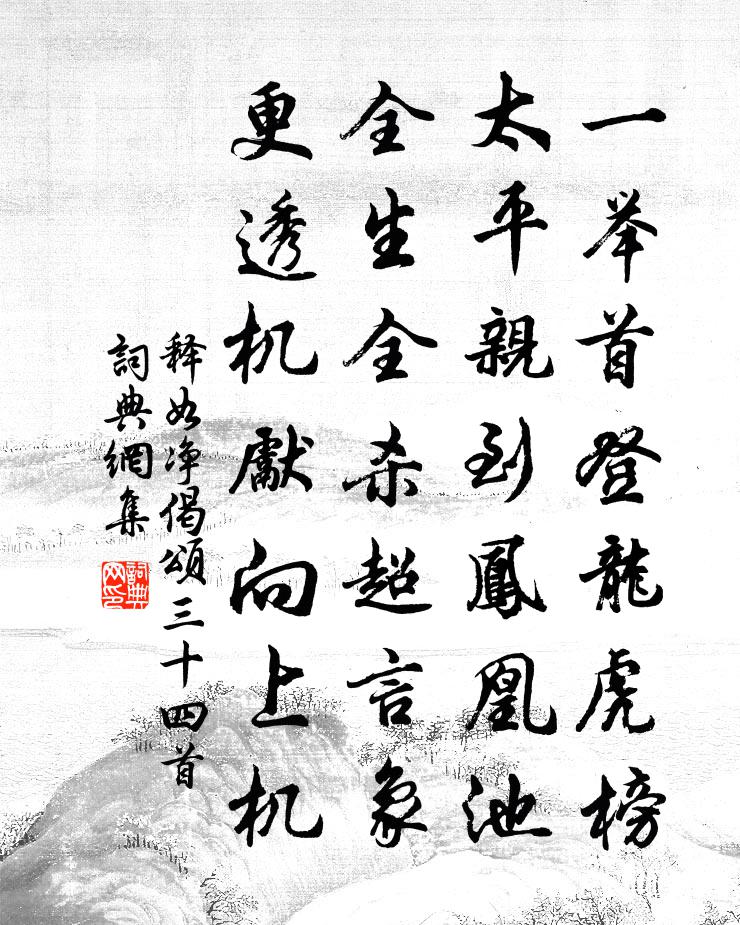 一举首登龍虎榜
太平親到鳳凰池
全生全杀超言象
更透机獻向上机
释如净偈頌三十四首
詞典網集
詞典網印